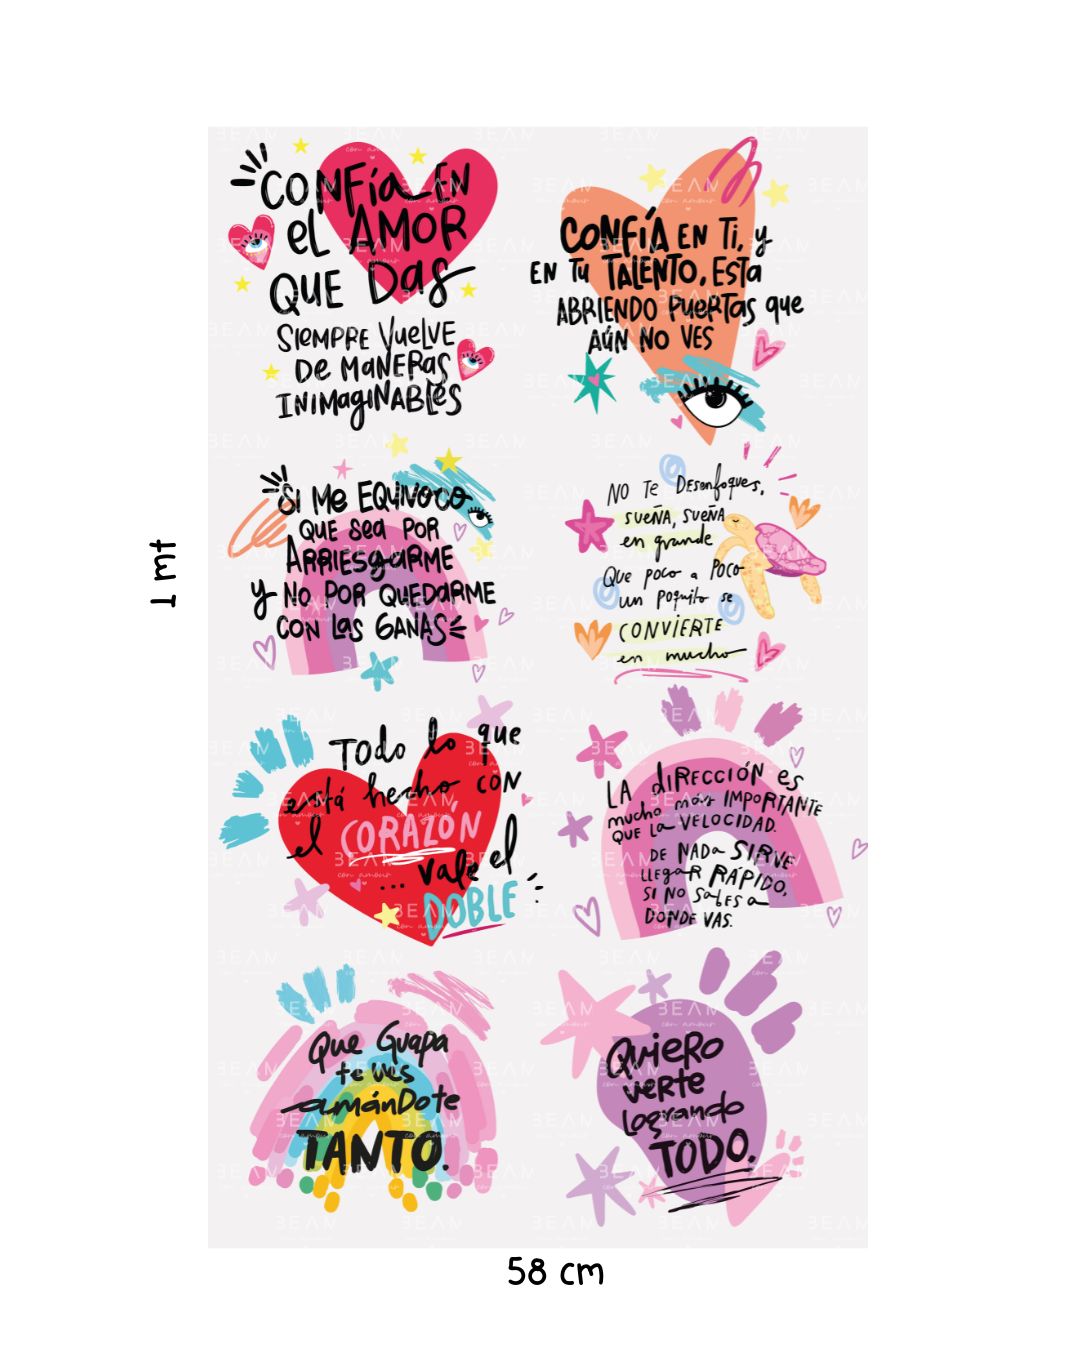 CONFía EN
eL AMOR
QUE Das
SIEMPRE VueLVE
DE MaNERas
INIMagINABLes
CONFÍA EN Ti, y
EN Tu TALENTO, ESTa
ABRIENDO PUERTas que
AÚN NO VES
Si Me EQUIVOCO
QUE sea POR
ARRIESgaRME
y NO POR QUEDaRME
CON Las GANAS
NO Te Desenfoques,
SUEÑA, SUEÑA
en grande
Que poco a Poco
un poquito se
CONVIERTE
en mucho
TODO lo que
está hecho CON
el CORAZÓN
... vale el
DOBLE
LA dIRECCIÓN es
mucho más IMPORTANTE
QUE La VELOCIDAD.
DE NADa SIRVE
LLEgaR RÁPIDO,
SI NO SabES a
DONDE VAS.
Que Guapa
te ves
amánDote
TANTO.
QuieRO
VERTE
Logrando
TODO.
1 mt
58 cm
BEAM
con amour